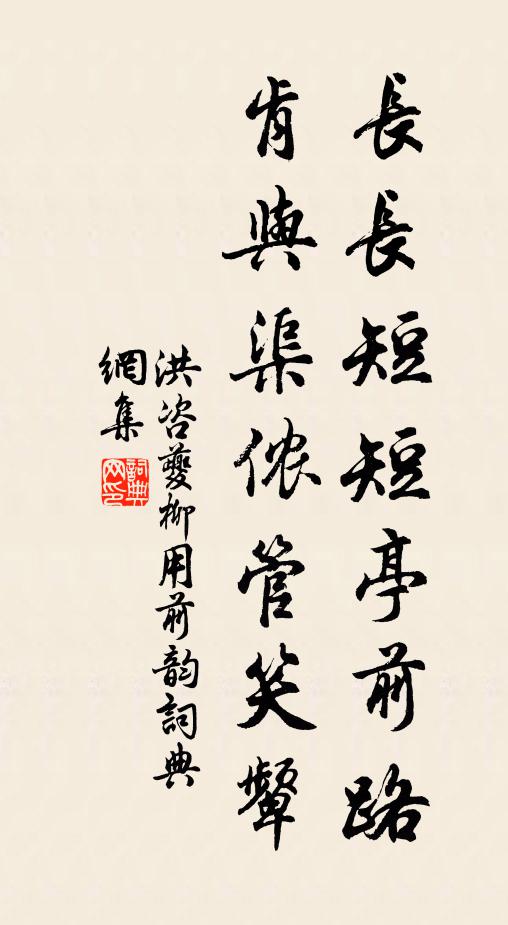 長長短短亭前路
肯與渠儂管笑顰
洪咨夔柳用前韵詞典
網集
詞典網印